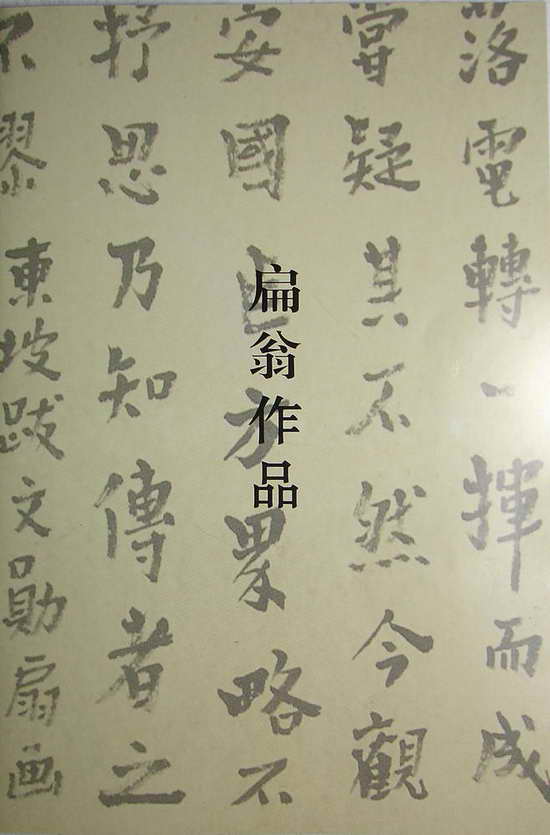 扁翁作品
落電轉一揮而成
嘗疑其不然今觀
安國方界略不
抒思乃知傳者之
不東坡跋文勛扇画